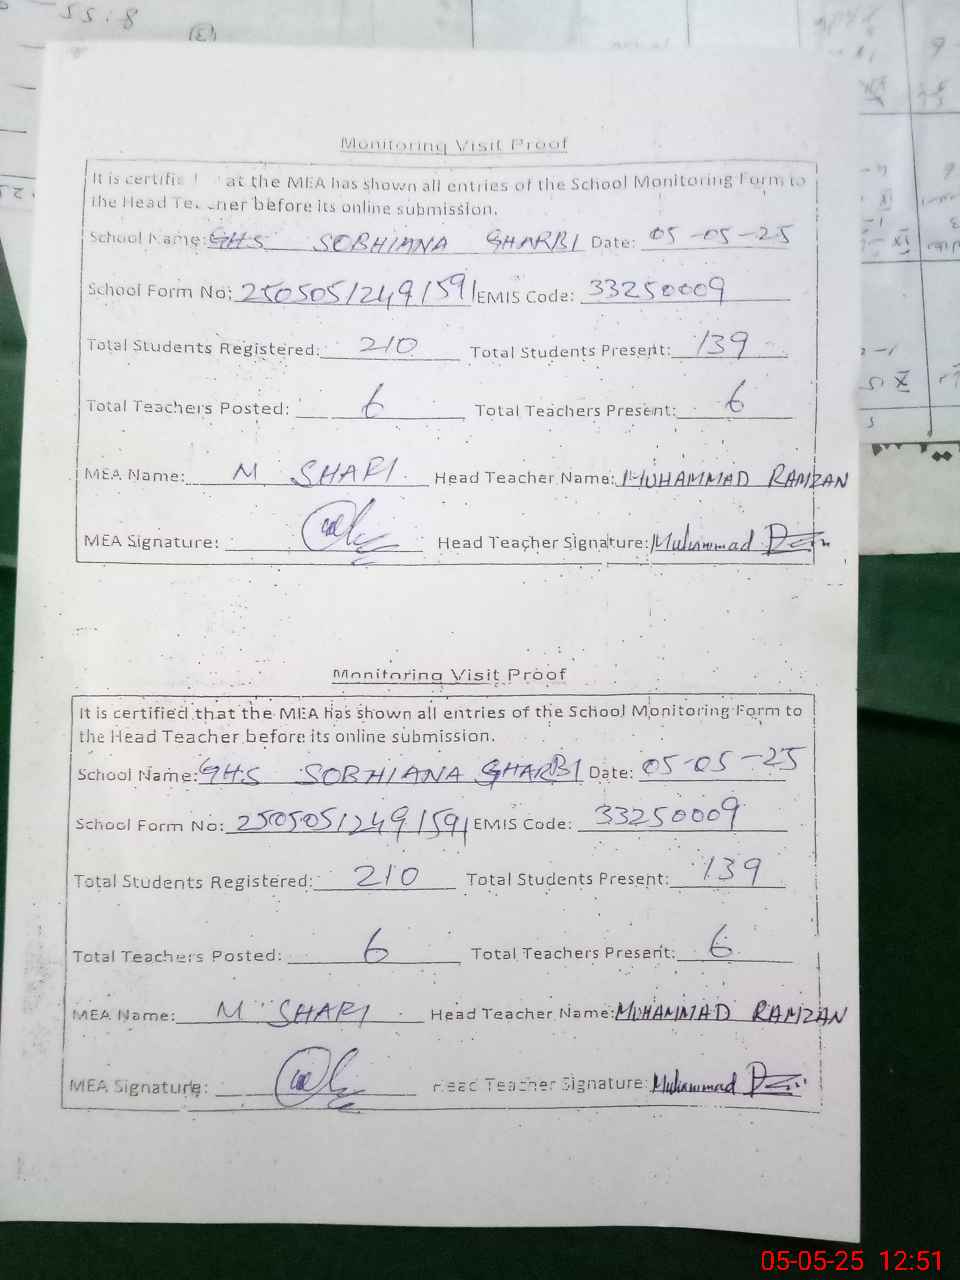 Monitoring Visit Proof
It is certifie at the MEA has shown all entries of the School Monitoring Form to
the Head Te cher before its online submission.
School Name: GHS SOBHIANA GHARBI Date: 05-05-25
School Form No: 2505051249159 EMIS Code: 33250009
Total Students Registered: 210 Total Students Present: 139
Total Teachers Posted: 6 Total Teachers Present: 6
MEA Name: M SHAFI. Head Teacher Name: MUHAMMAD RAMZAN
MEA Signature: Head Teacher Signature: Muhammad
Monitoring Visit Proof
It is certified that the MEA has shown all entries of the School Monitoring Form to
the Head Teacher before its online submission.
School Name: GHS SOBHIANA GHARBI Date: 05-05-25
School Form No: 2505051249159 EMIS Code: 33250009
Total Students Registered: 210 Total Students Present: 139
Total Teachers Posted: 6 Total Teachers Present: 6
MEA Name: M SHAFI Head Teacher Name: MUHAMMAD RAMZAN
MEA Signature: Head Teacher Signature: Muhammad
05-05-25 12:51